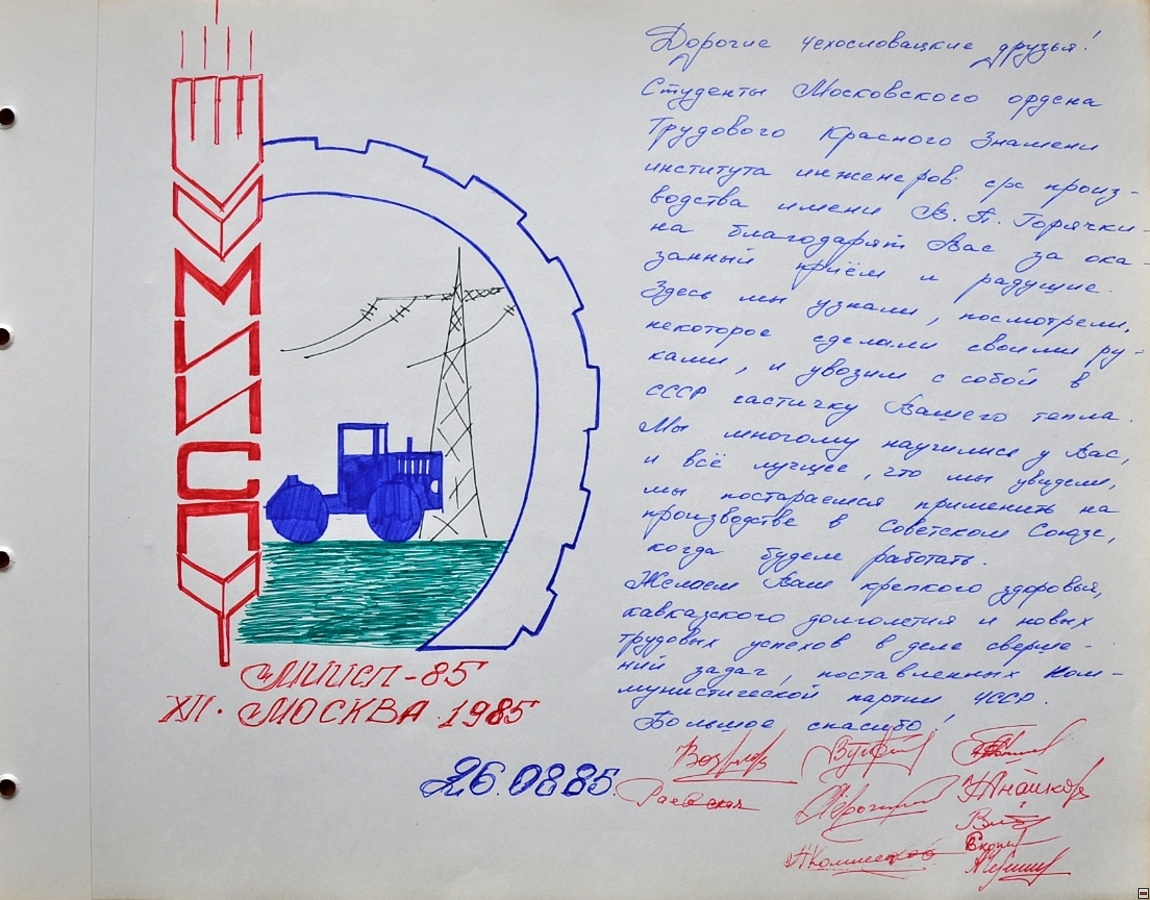 МИИСП
МИИСП-85
XII. МОСКВА 1985
26.08.85.
Дорогие чехословацкие друзья!
Студенты Московского ордена
Трудового Красного Знамени
института инженеров с/х произ-
водства имени В.П. Горячки-
на благодарят Вас за ока-
занный приём и радушие.
Здесь мы узнали, посмотрели,
некоторое сделали своими ру-
ками, и увозим с собой в
СССР частичку Вашего тепла.
Мы многому научились у Вас,
и всё лучшее, что мы увидели,
мы постараемся применить на
производстве в Советском Союзе,
когда будем работать.
Желаем Вам крепкого здоровья,
кавказского долголетия и новых
трудовых успехов в деле сверше-
ний задач, поставленных Ком-
мунистической партии ЧССР.
Большое спасибо!
Раевская